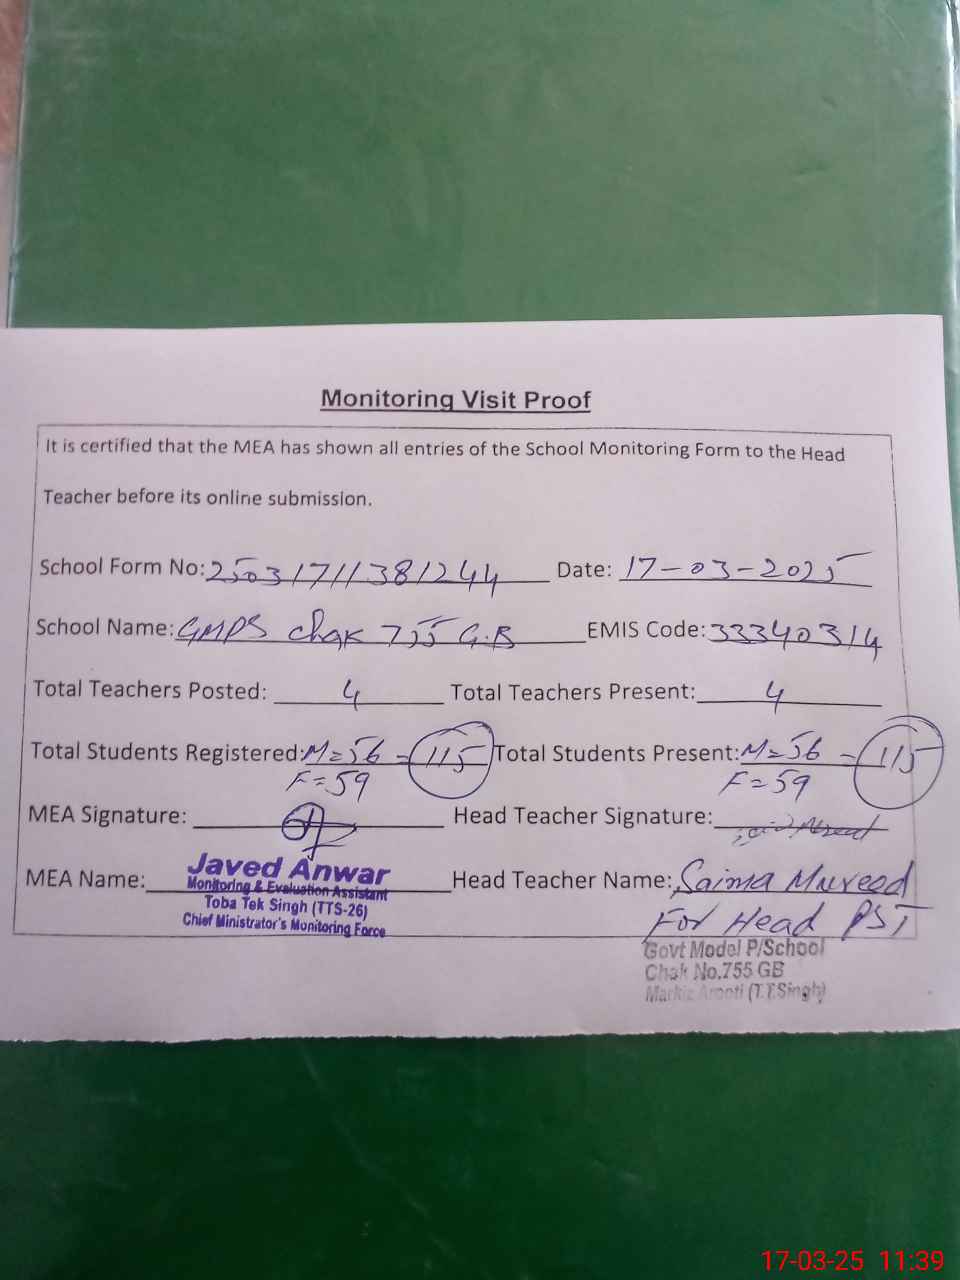 Monitoring Visit Proof
It is certified that the MEA has shown all entries of the School Monitoring Form to the Head
Teacher before its online submission.
School Form No: 25031711381244 Date: 17-03-2025
School Name: GMPS Chak 755 G.B EMIS Code: 33340314
Total Teachers Posted: 4 Total Teachers Present: 4
Total Students Registered: M=56 - 115 Total Students Present: M=56 - 115
F=59 F=59
MEA Signature: Head Teacher Signature:
MEA Name: Javed Anwar Head Teacher Name: Saima Mureed
Monitoring & Evaluation Assistant
Toba Tek Singh (TTS-26) For Head PST
Chief Ministrator's Monitoring Force
Govt Model P/School
Chak No.755 GB
Markiz Arooti (T.T.Singh)
17-03-25 11:39